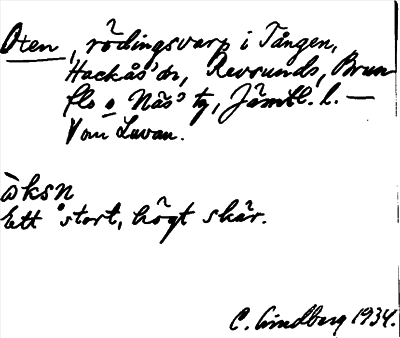 Oten, rödingsvarp i Tången,
Hackås' sn, Revsunds, Brun
flo o Näs' tg, Jämtl. l. —
V om Luvan.
öksn
Ett stort, högt skär.
C. Lindberg 1934.